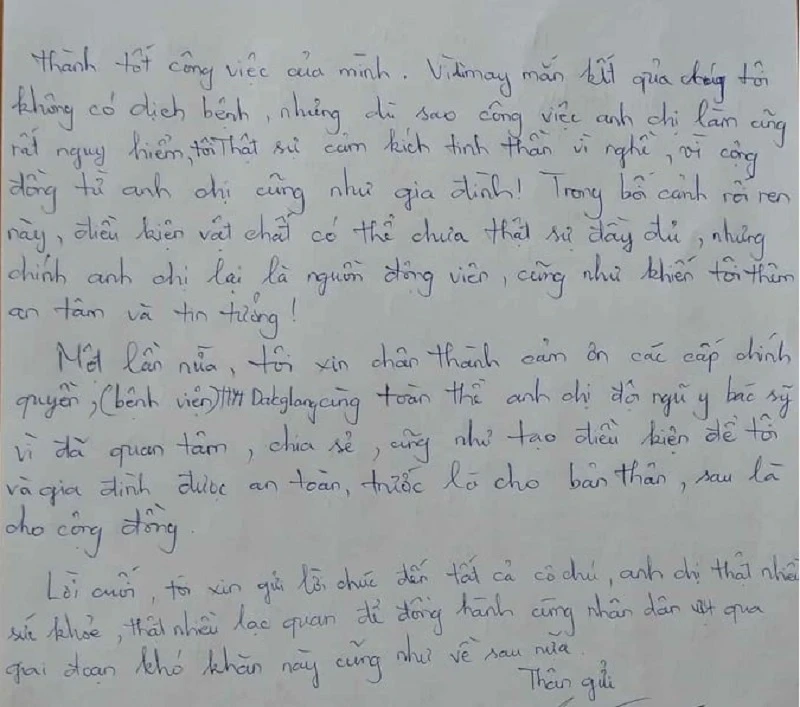 thành tốt công việc của mình. Vì may mắn kết quả chúng tôi
không có dịch bệnh, nhưng dù sao công việc anh chị làm cũng
rất nguy hiểm, tôi Thật sự cảm kích tinh thần vì nghề, vì cộng
đồng từ anh chị cũng như gia đình! Trong bối cảnh rối ren
này, điều kiện vật chất có thể chưa thật sự đầy đủ, nhưng
chính anh chị lại là nguồn động viên, cũng như khiến tôi thêm
an tâm và tin tưởng!
Một lần nữa, tôi xin chân thành cảm ơn các cấp chính
quyền, (bệnh viện) Đakglang cùng toàn thể anh chị đội ngũ y bác sỹ
vì đã quan tâm, chia sẻ, cũng như tạo điều kiện để tôi
và gia đình được an toàn, trước là cho bản thân, sau là
cho cộng đồng.
Lời cuối, tôi xin gửi lời chúc đến tất cả cô chú, anh chị thật nhiều
sức khỏe, thật nhiều lạc quan để đồng hành cùng nhân dân vượt qua
giai đoạn khó khăn này cũng như về sau nữa.
Thân gửi